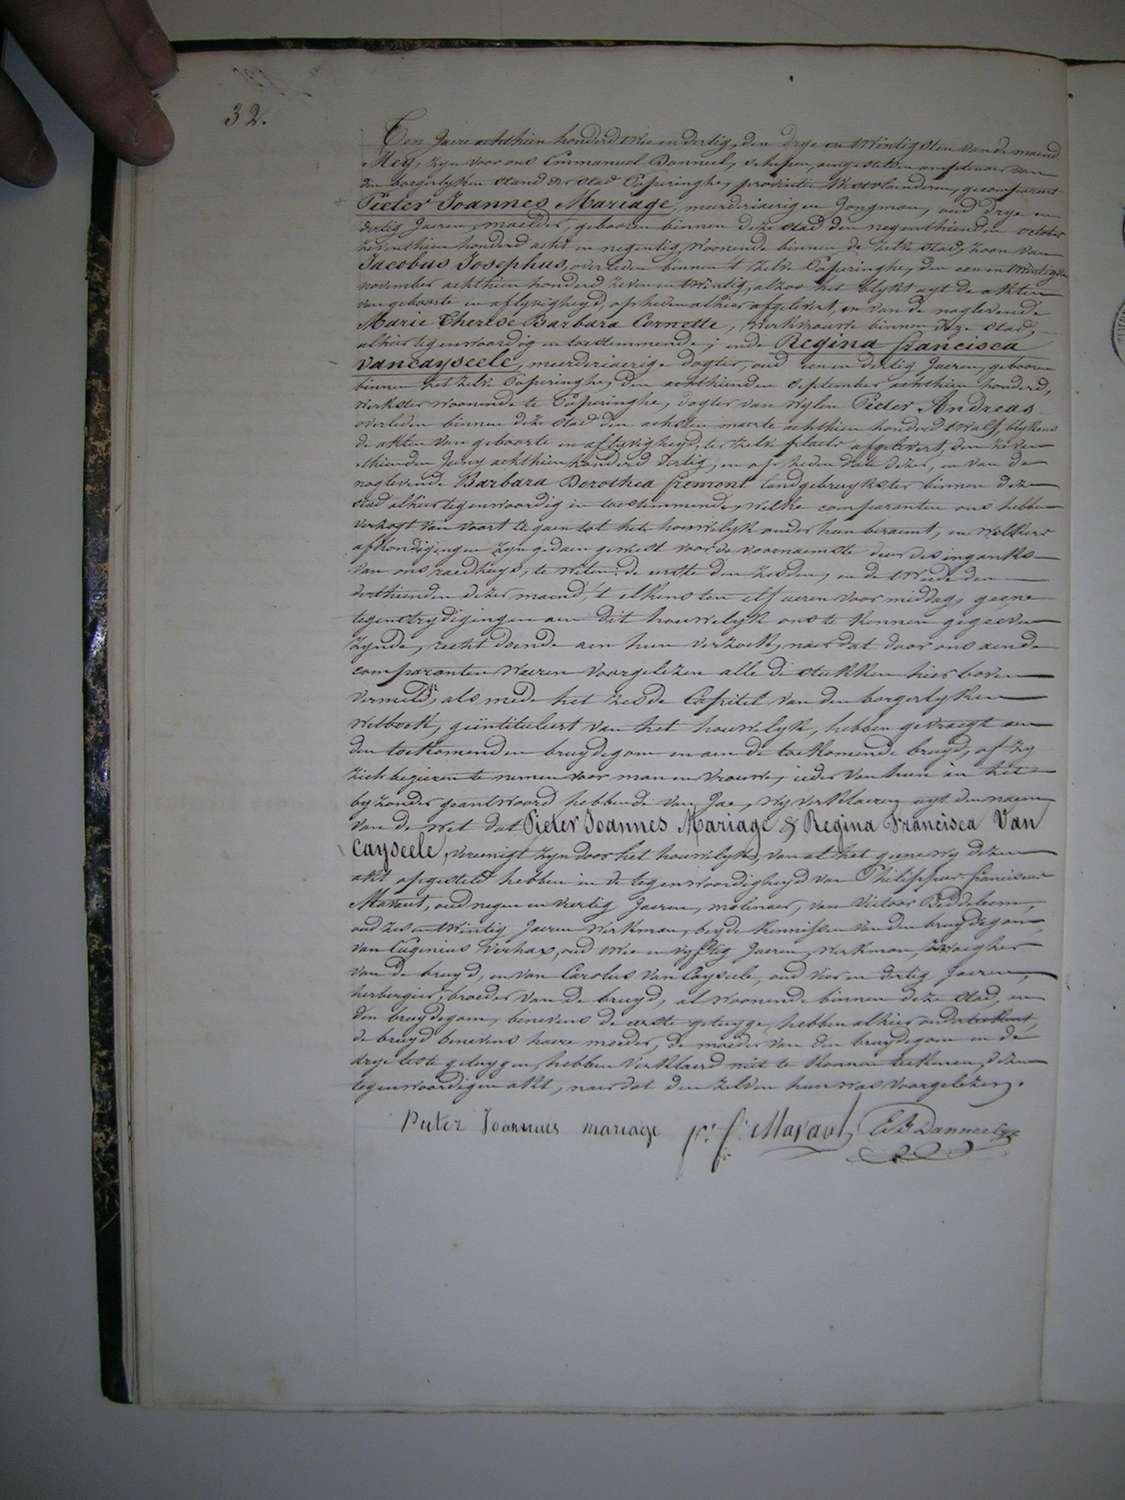 32.
Ten Jaere achthien honderd twee en dertig, den drye en twintigsten van de maend
Mey, zyn voor ons Emmanuel Danneel, schepen, aengestelden amptenaer van
den borgerlyken stand der stad Poperinghe, provintie Westvlaenderen, gecompareert
Pieter Joannes Mariage, meerderjaerigen Jongman, oud drye en
dertig Jaeren, maelder, gebooren binnen deze stad den negenthienden october
zeventhien honderd acht en negentig, woonende binnen de zelve stad, zoon van
Jacobus Josephus, overleden binnen 't zelve Poperinghe, den een en twintigsten
november achthien honderd zeven en twintig, alzoo het blykt uyt de akten
van geboorte en aflyvigheyd, op heden alhier afgelevert, en van de naglevende
Marie Therese Barbara Cornette, werkvrouwe binnen deze stad,
alhier tegenwoordig en toestemmende; ende Regina francisca
Vancayseele, meerderjaerige dogter, oud een en dertig Jaeren, gebooren
binnen het zelve Poperinghe, den achthienden September achthien honderd,
werkster woonende te Poperinghe, dogter van wylen Pieter Andreas
overleden binnen deze stad den achsten maerte achthien honderd twalf, blykens
de akten van geboorte en aflyvigheyd, ter zelve plaets afgelevert, den zeven-
thienden Juny achthien honderd dertig, en op heden date dezer, en van de
naglevende Barbara Dorothea fremont landgebruykster binnen deze
stad alhier tegenwoordig en toestemmende, welke comparanten ons hebben
verzogt van voort te gaen tot het houwelyk onder hun beraemt, en welkers
afkondigingen zyn gedaen geweest voor de voornaemste deur des inganks
van ons raedhuys, te weten: de eerste den zesden, en de tweede den
derthienden dezer maend, 't elkens ten elf ueren voor middag, geene
tegenstrydigingen aen dit houwelyk ons te kennen gegeven
zynde, recht doende aen hun verzoek, naer dat door ons aen de
comparanten waeren voorgelezen alle de stukken hier boven
vermeld, als mede het zesde Capitel van den borgerlyken
Wetboek, geïntituleert van het houwelyk, hebben gevraegt aen
den toekomenden bruydegom en aen de toekomende bruyd, of zy
zich begeeren te nemen voor man en vrouwe, ieder van hun in het
byzonder geantwoord hebbende van Jae, Wy verklaeren uyt den naem
van de wet dat Pieter Joannes Mariage & Regina Francisca Van
Cayseele, vereenigt zyn door het houwelyk, van al het geene wy dezen
akt opgesteld hebben in de tegenwoordigheyd van Philippus franciscus
Mavaut, oud negen en veertig Jaeren, molenaer, van Victoor Beddeleem,
oud zes en twintig Jaeren werkman, beyde kennissen van den bruydegom,
van Eugenius Verhax, oud twee en vyftig Jaeren, werkman, zwaegher
van de bruyd, en van Carolus Van Cayseele, oud vier en dertig Jaeren,
herbergier, broeder van de bruyd, al woonende binnen deze stad, en
den bruydegom, benevens de eerste getuyge, hebben alhier onderteekent,
de bruyd benevens haere moeder, de moeder van den bruydegom en de
drye leste getuygen, hebben verklaerd niet te konnen teekenen, dezen
tegenwoordigen akt, naer dat den zelven hun was voorgelezen.
Pieter Joannes mariage ph. f. Mavaut E. Danneel